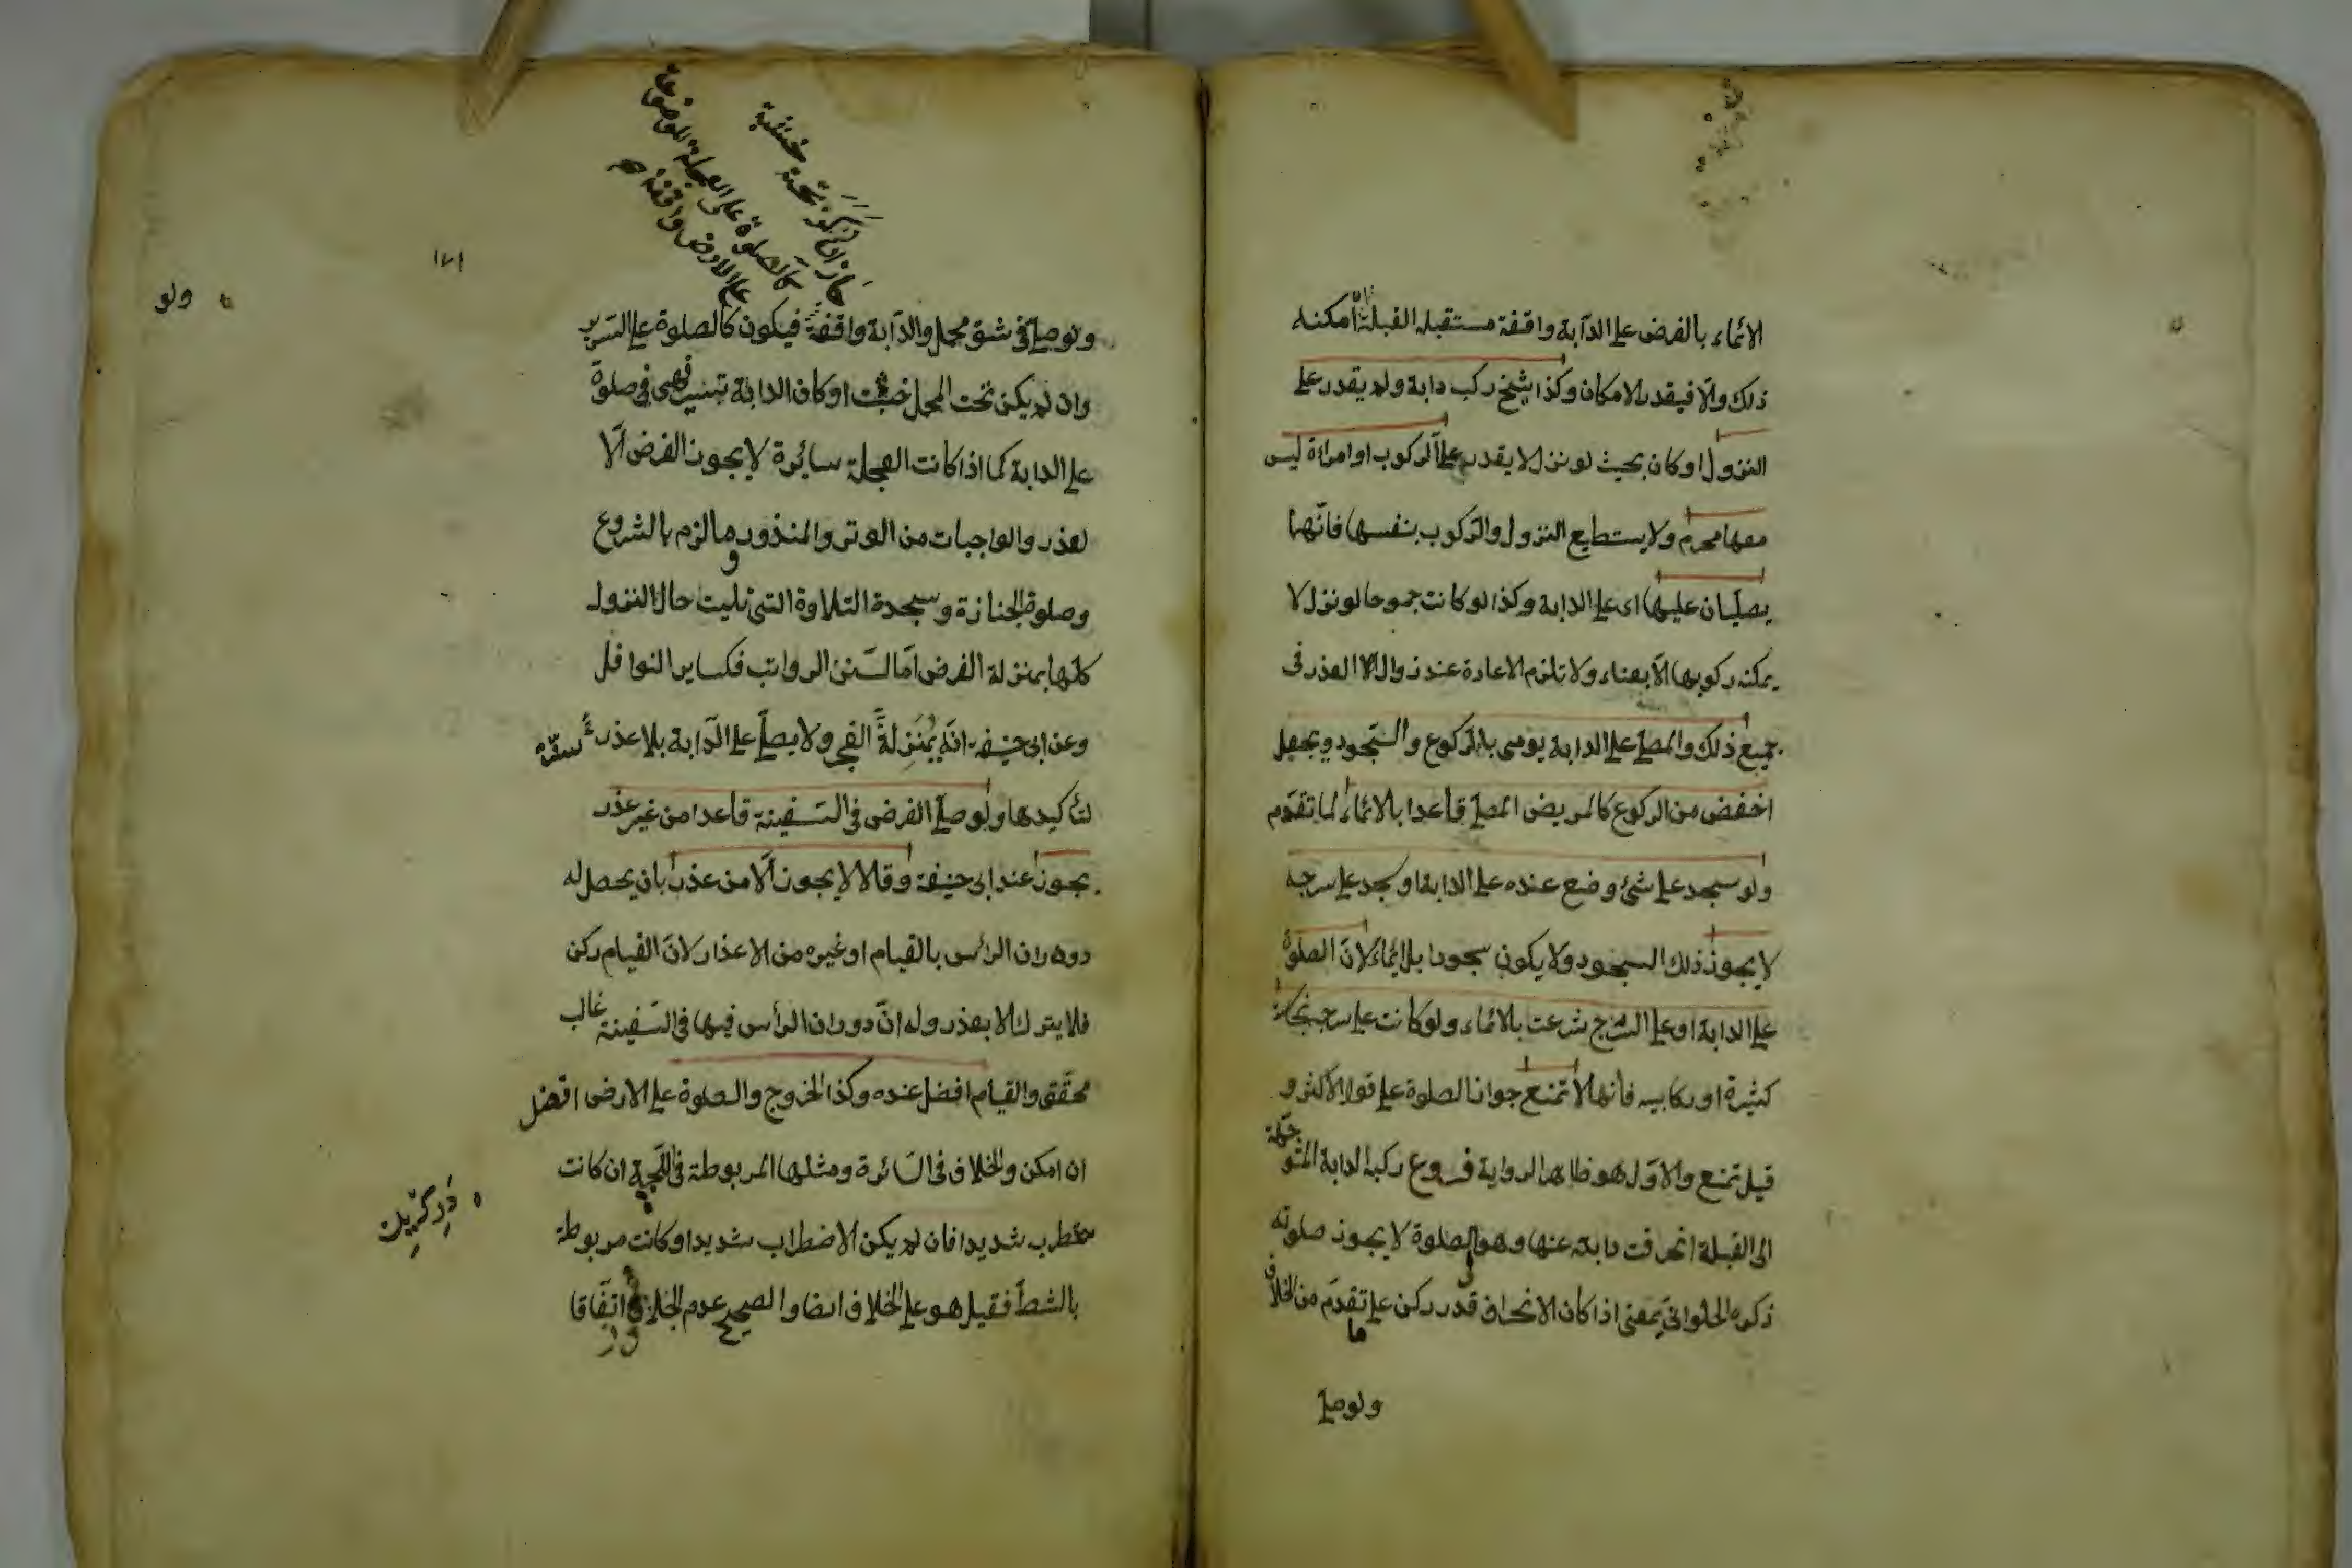 الائماء بالفرض على الدابة واقفة مستقبلة القبلة ان امكنه
ذلك والا فبقدر الامكان وكذا شيخ ركب دابة ولم يقدر على
النزول او كان بحيث لو نزل لا يقدر على الركوب او امراة ليس
معها محرم ولا يستطيع النزول والركوب بنفسها فانهما
يصليان عليها اى على الدابة وكذا لو كانت جموحا لو نزل لا
يمكنه ركوبها الا بعناء ولا تلزم الاعادة عند زوال العذر فى
جميع ذلك والمصلى على الدابة يومى بالركوع والسجود ويجعل
اخفض من الركوع كالمريض المصلى قاعدا بالائماء لما تقدم
ولو سجد على شئ وضع عنده على الدابة او سجد على سرجه
لا يجوز ذلك السجود ولا يكون سجودا بل ايماء لان الصلوة
على الدابة او على السرج شرعت بالائماء ولو كانت على سرجه نجاسة
كثيرة او ركابيه فانها لا تمنع جواز الصلوة على قول الاكثر و
قيل تمنع والاول هو ظاهر الرواية فروع ركب الدابة المتوجهة
الى القبلة انحرفت دابته عنها وهو فى الصلوة لا يجوز صلوته
ذكره الحلوانى يعنى اذا كان الانحراف قدر ركن على ما تقدم من الخلاف
ولو صلى
جاز ان يكون تحته خشبة
كالصلوة على العجلة الموضوعة
على الارض واقفة
١٧١
ولو
ولو صلى فى شق محمل والدابة واقفة فيكون كالصلوة على السرير
وان لم يكن تحت المحمل خشبة او كان الدابة تسير فهى فى صلوة
على الدابة كما اذا كانت العجلة سائرة لا يجوز الفرض الا
لعذر والواجبات من الوتر والمنذور وما لزم بالشروع
وصلوة الجنازة وسجدة التلاوة التى تليت حال النزول
كلها بمنزلة الفرض اما السنن الرواتب فكساير النوافل
وعن ابى حنيفه انه ينزل لسنة الفجر ولا يصلى على الدابة بلا عذر
لتأكيدها ولو صلى الفرض فى السفينة قاعدا من غير عذر
يجوز عند ابى حنيفة وقالا لا يجوز الا من عذر بان يحصل له
دوران الرأس بالقيام او غيره من الاعذار لان القيام ركن
فلا يترك الا بعذر وله ان دوران الرأس فيها فى السفينة غالب
محقق والقيام افضل عنده وكذا الخروج والصلوة على الارض افضل
ان امكن والخلاف فى السائرة ومثلها المربوطة فى اللجة ان كانت
تضطرب شديدا فان لم يكن الاضطراب شديدا وكانت مربوطة
بالشط فقيل هو على الخلاف ايضا والصحيح عدم الجواز اتفاقا